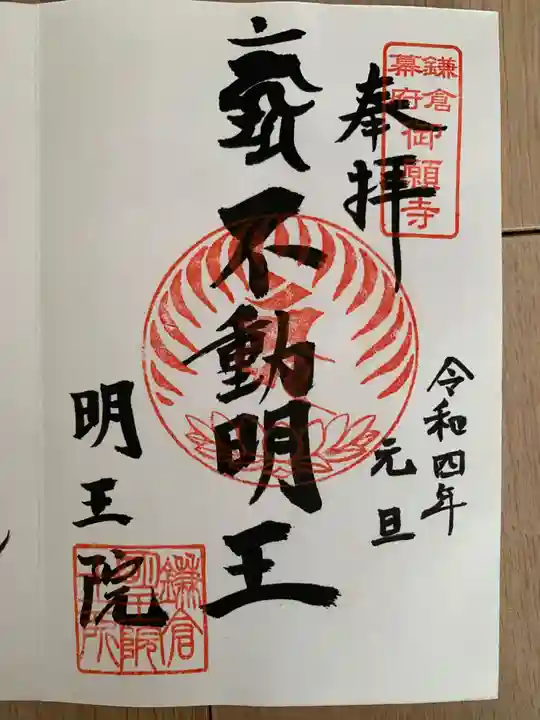 鎌倉
幕府
御願寺
奉拝
令和四年
元旦
不動明王
明王院
鎌倉